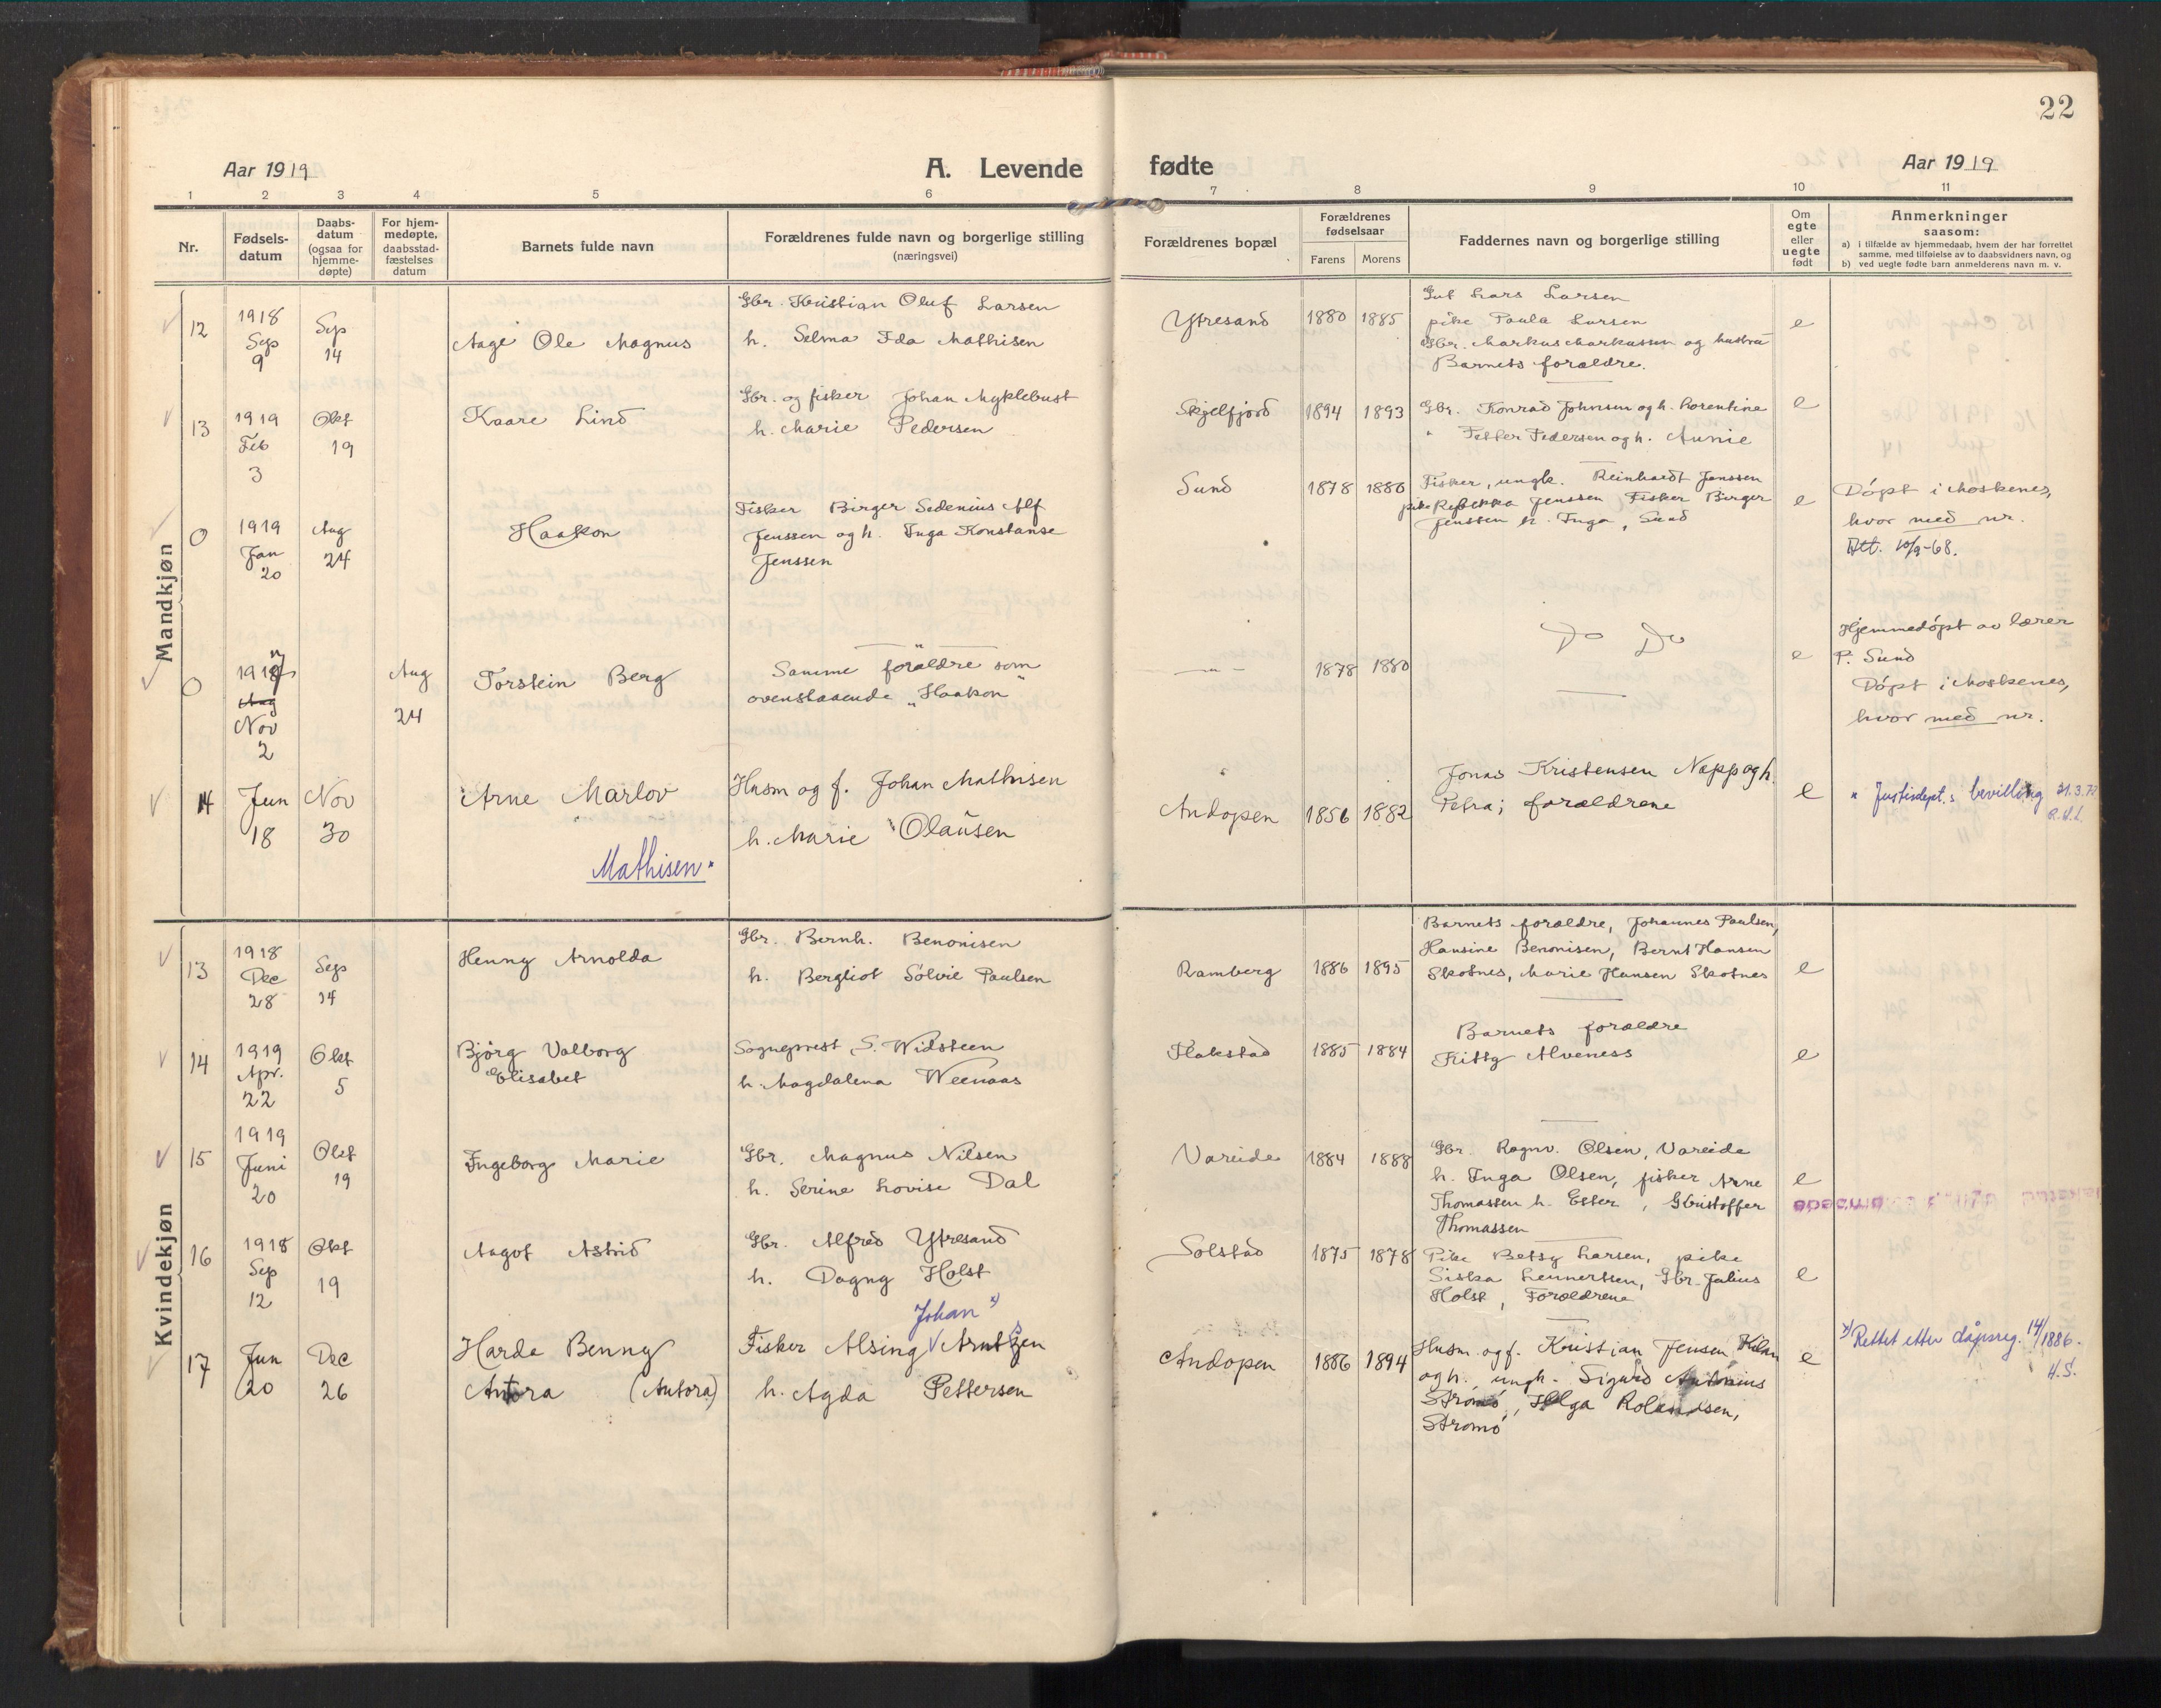 22
Aar 1919
A. Levende fødte
Aar 1919
1 2 3 4 5 6 7 8 9 10 11
Nr.
Fødsels-
datum
Daabs-
datum
(ogsaa for
hjemme-
døpte)
For hjem-
medøpte,
daabsstad-
fæstelses
datum
Barnets fulde navn
Forældrenes fulde navn og borgerlige stilling
(næringsvei)
Forældrenes bopæl
Forældrenes
fødselsaar
Farens Morens
Faddernes navn og borgerlige stilling
Om
egte
eller
uegte
født
Anmerkninger
saasom:
a) i tilfælde av hjemmedaab, hvem der har forrettet
samme, med tilføielse av to daabsvidners navn, og
b) ved uegte fødte barn anmelderens navn m. v.
Mandkjøn
12
1918
Sep
9
Sep
14
Aage Ole Magnus
Gbr. Kristian Oluf Larsen
h. Selma Ida Mathisen
Ytresand
1880 1885
Gut Lars Larsen
pike Paula Larsen
Gbr. Markus Markussen og hustru
Barnets forældre.
e
13
1919
Feb
3
Okt
19
Kaare Lind
Gbr. og fisker Johan Myklebust
h. Marie Pedersen
Skjelfjord
1894 1893
Gbr. Konrad Johnsen og h. Lorentine
" Petter Pedersen og h. Aunie
e
0
1919
Jan
20
Aug
24
Haakon
Fisker Birger Sedenius Alf
Jenssen og h. Inga Konstanse
Jenssen
Sund
1878 1880
Fisker, ungk. Reinhardt Jenssen
pike Rebekka Jenssen Fisker Birger
Jenssen h. Inga, Sund
e
Døpt i Moskenes,
hvor med nr.
Att. 10/9-68.
0
1917
Aug
Nov
2
Aug
24
Torstein Berg
Samme forældre som
ovenstaaende „Haakon"
— " —
1878 1880
Do Do
e
Hjemmedøpt av lærer
P. Sund
Døpt i Moskenes,
hvor med nr.
14
Jun
18
Nov
30
Arne Marlov
Mathisen "
Husm og f. Johan Mathisen
h. Marie Olausen
Andopen
1856 1882
Jonas Kristensen Napp og h.
Petra; forældrene
e
" Justisdept.s bevilling 21.3.72
Kvindekjøn
13
1918
Dec
28
Sep
14
Henny Arnolda
Gbr. Bernh. Benonisen
h. Bergliot Solvie Paulsen
Ramberg
1886 1895
Barnets forældre, Johannes Paulsen,
Hansine Benonisen, Bernt Hansen
Skotnes, Marie Hansen Skotnes
e
14
1919
Apr.
22
Okt
5
Bjørg Valborg
Elisabet
Sogneprest S. Widsteen
h. Magdalena Weenaas
Flakstad
1885 1884
Barnets forældre
Kitty Alveness
e
15
1919
Juni
20
Okt
19
Ingeborg Marie
Gbr. Magnus Nilsen
h. Serine Lovise Dal
Vareide
1884 1888
Gbr. Ragnv. Olsen, Vareide
h. Inga Olsen, fisker Arne
Thomassen h. Ester, Kristoffer
Thomassen
e
16
1918
Sep
12
Okt
19
Aagot Astrid
Gbr. Alfred Ytresand
h. Dagny Holst
Solstad
1875 1878
Pike Betsy Larsen, pike
Siska Lennertsen, Gbr. Julius
Holst, Forældrene
e
17
Jun
20
Dec
26
Harda Benny
Antora (Antora)
Johan x)
Fisker Alsing Arntzen
h. Agda Pettersen
Andopen
1886 1894
Husm. og f. Kristian Jensen Kilan
og h. ungk. Sigurd Antonius
Strømø, Helga Rolandsen,
Strømø
e
x) Rettet etter dåpsreg. 14/1886.
H.S.